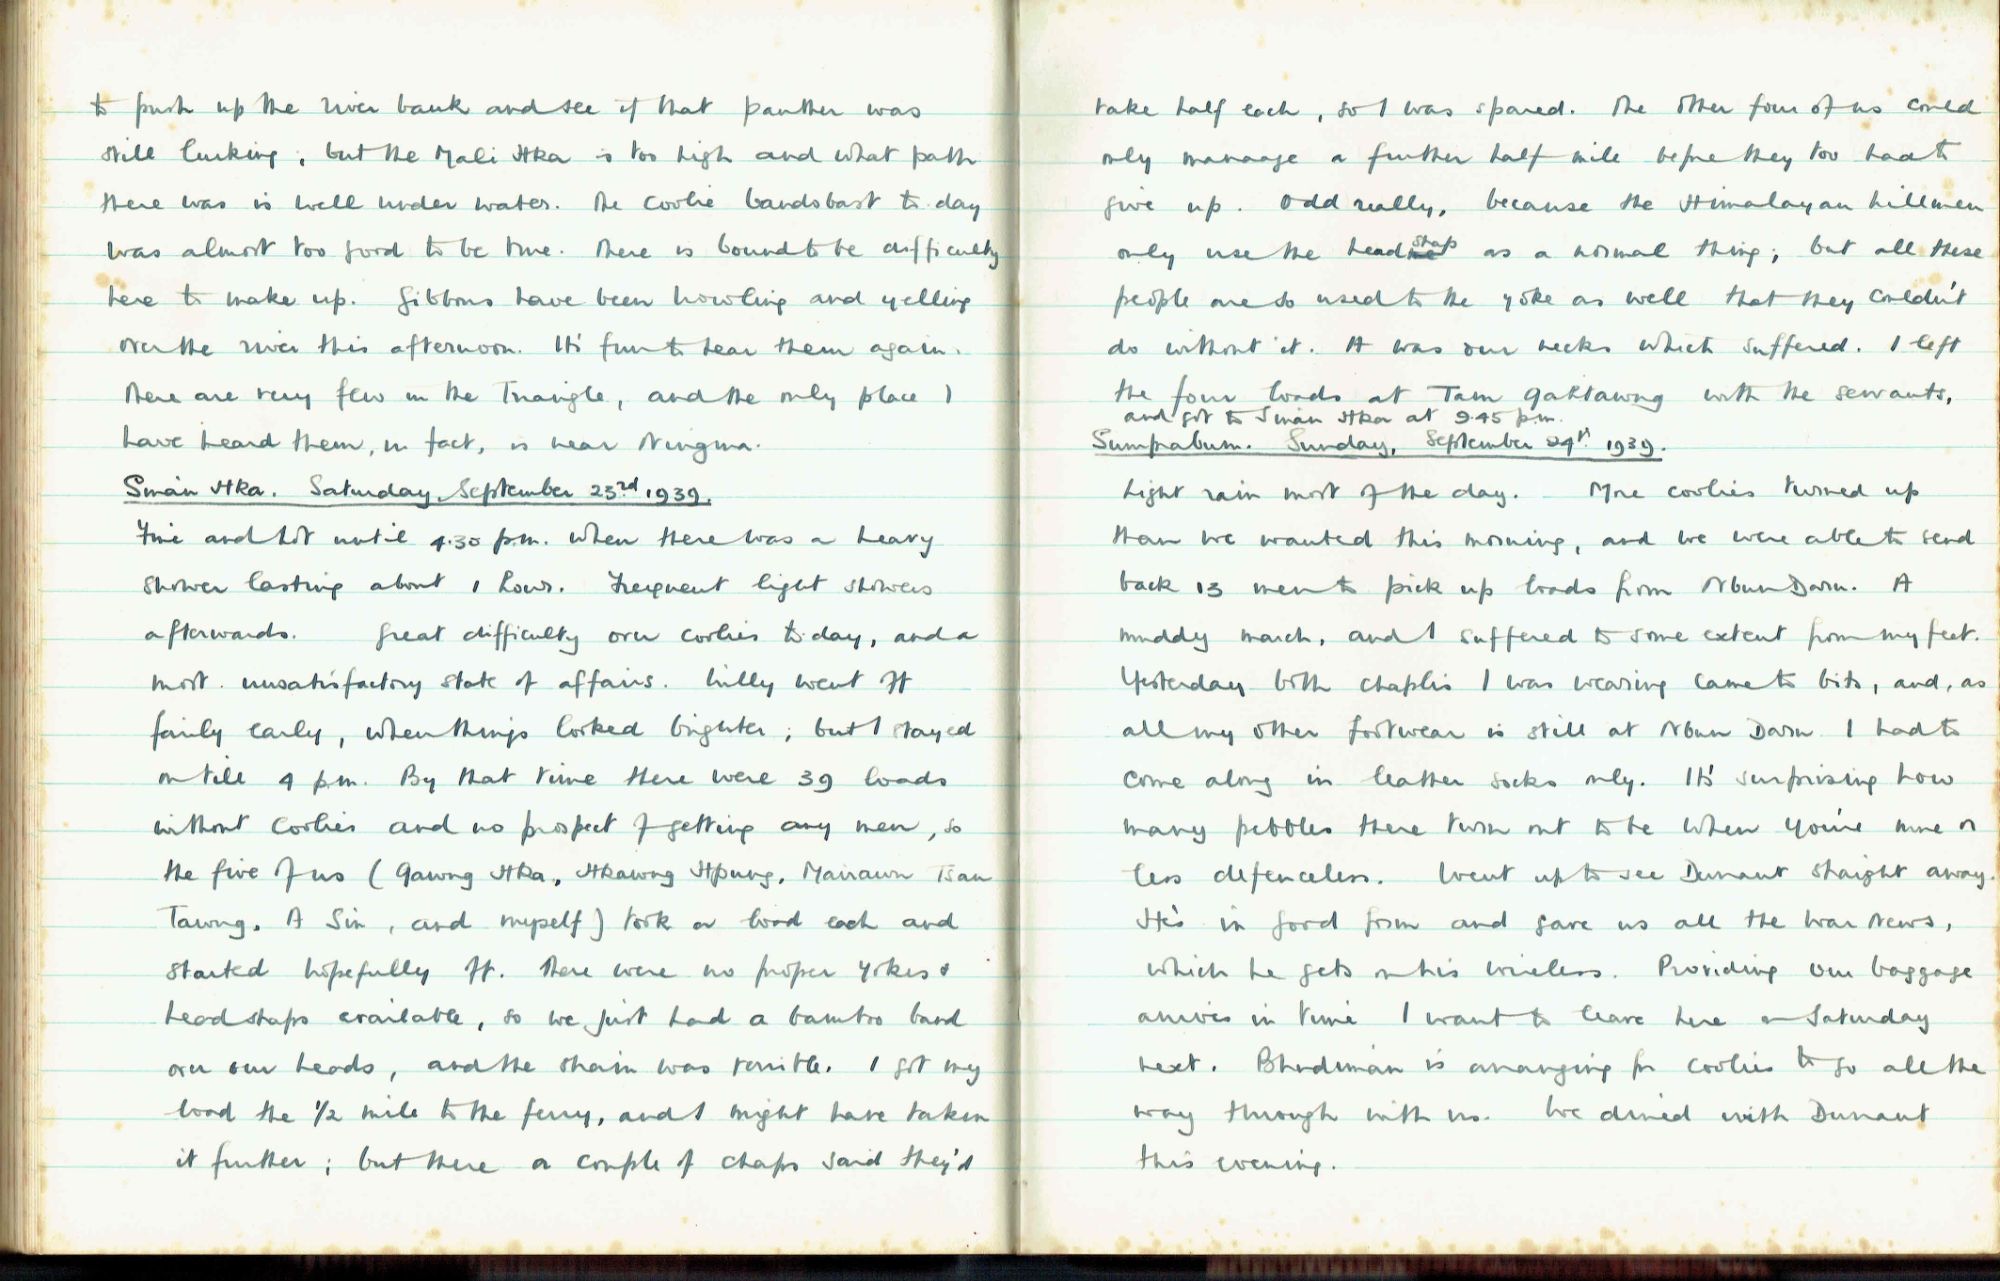 to push up the river bank and see if that panther was
still lurking, but the Mali Hka is too high and what path
there was is well under water. The coolie bandobast to-day
was almost too good to be true. There is bound to be difficulty
here to make up. Gibbons have been howling and yelling
over the river this afternoon. It's fun to hear them again.
There are very few in the Triangle, and the only place I
have heard them, in fact, is near Ningma.
Smān Hka. Saturday, September 23rd 1939.
Fine and hot until 4.30 p.m. when there was a heavy
shower lasting about 1 hour. Frequent light showers
afterwards. Great difficulty over coolies to-day, and a
most unsatisfactory state of affairs. Lilly went off
fairly early, when things looked brighter; but I stayed
on till 4 p.m. By that time there were 39 loads
without coolies and no prospect of getting any men, so
the five of us (Gawng Hka, Hkawng Hpung, Mairawn Tsan
Tawng, A Sin, and myself) took a load each and
started hopefully off. There were no proper yokes &
headstraps available, so we just had a bamboo band
over our heads, and the strain was terrible. I got my
load the 1/2 mile to the ferry, and I might have taken
it further; but there a couple of chaps said they'd
take half each, so I was spared. The other four of us could
only manage a further half mile before they too had to
give up. Odd really, because the Himalayan hillmen
only use the headstraps as a normal thing; but all these
people are so used to the yoke as well that they couldn't
do without it. It was our necks which suffered. I left
the four loads at Tam Gahtawng with the servants,
and got to Smān Hka at 9.45 p.m.
Sumprabum. Sunday, September 24th 1939.
Light rain most of the day. More coolies turned up
than we wanted this morning, and we were able to send
back 13 men to pick up loads from Nbun Darn. A
muddy march, and I suffered to some extent from my feet.
Yesterday both chaplis I was wearing came to bits, and, as
all my other footwear is still at Nbun Darn I had to
come along in leather socks only. It's surprising how
many pebbles there turn out to be when you're more or
less defenceless. Went up to see Durant straight away.
He's in good form and gave us all the war news,
which he gets on his wireless. Providing our baggage
arrives in time I want to leave here on Saturday
next. Bhudiman is arranging for coolies to go all the
way through with us. We dined with Durant
this evening.